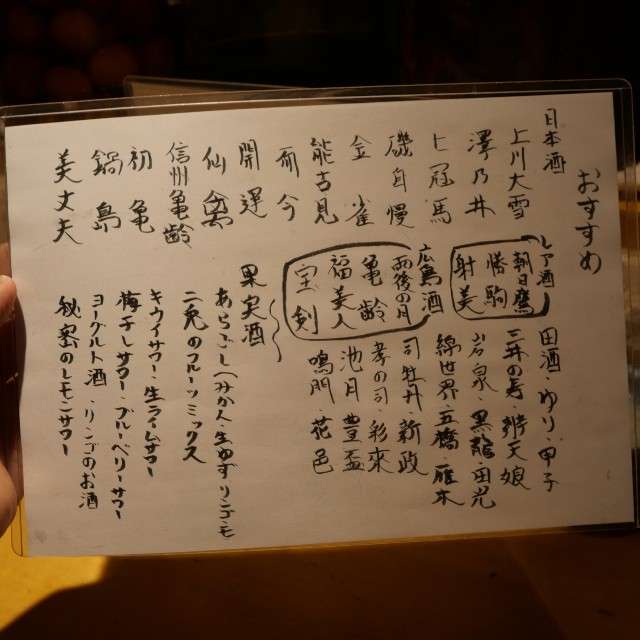 おすすめ
日本酒
上川大雪
澤乃井
七冠馬
磯自慢
金雀
能古見
而今
開運
仙禽
信州亀齢
初亀
鍋島
美丈夫
レア酒
朝日鷹
勝駒
射美
広島酒
雨後の月
亀齢
福美人
宝剣
田酒・ゆり・甲子
三井の寿・辨天娘
岩泉・黒龍・田光
錦世界・五橋・雁木
司牡丹・新政
孝の司・彩來
池月・豊盃
鳴門・花邑
果実酒
あらごし(みかん・生ゆず・リンゴ・モモ
二兎のフルーツミックス
キウイサワー・生ライムサワー
梅干しサワー・ブルーベリーサワー
ヨーグルト酒・リンゴのお酒
秘蜜のレモンサワー